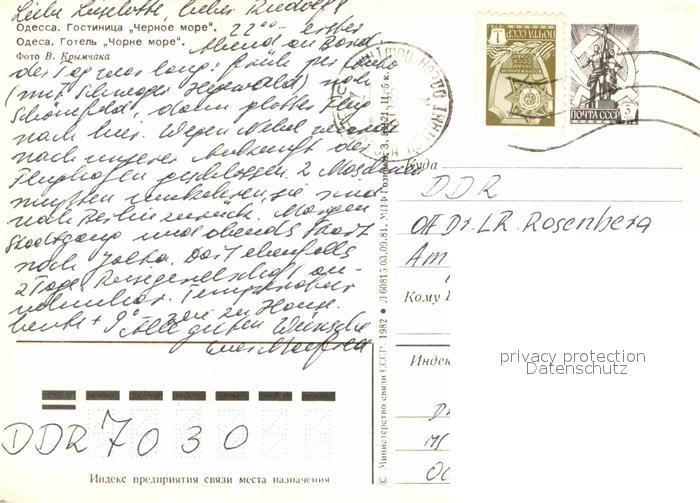 Liebe Liselotte, lieber Rudolf!
Одесса. Гостиница „Черное море".
Одеса. Готель „Чорне море".
Фото В. Крымчака
22⁰⁰ erster
Abend an Bord
der Tag war lang: früh per
(mit Schwager) nach
Schönefeld, dann glatter Flug
nach hier. Wegen Nebel wurde
nach unserer Ankunft der
Flughafen geschlossen. 2 Maschinen
mußten umkehren, sie sind
nach Berlin zurück. Morgen
Stadtgang und abends Fahrt
nach Jalta. Dort ebenfalls
2 Tage. Reisegesellschaft an-
nehmbar. Temperatur
heute + 9° wie zu Hause.
Alle guten Wünsche
Euer Manfred
DDR 7030
Индекс предприятия связи места назначения
© Министерство связи СССР. 1982 ● Л 60815 03.09.81. МПФ Гознака. З. Ц. 5 к.
ПОЧТА СССР
1
ПОЧТА СССР
Куда
DDR
OA Dr. LR. Rosenberg
Am
Кому
Индекс
privacy protection
Datenschutz